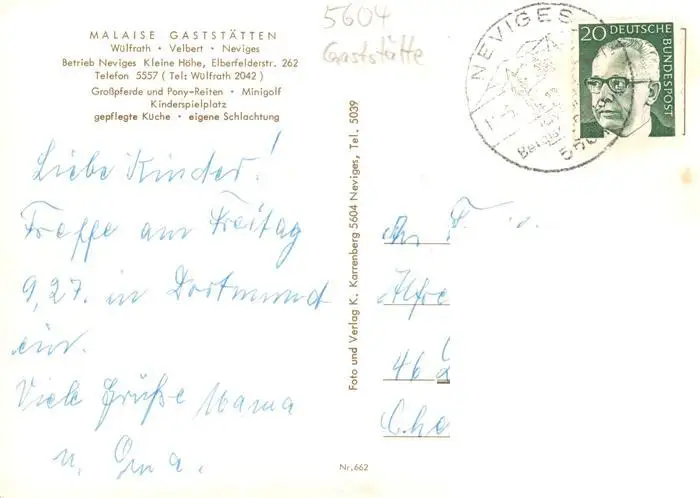 MALAISE GASTSTÄTTEN
Wülfrath • Velbert • Neviges
Betrieb Neviges Kleine Höhe, Elberfelderstr. 262
Telefon 5557 ( Tel: Wülfrath 2042 )
Großpferde und Pony-Reiten • Minigolf
Kinderspielplatz
gepflegte Küche • eigene Schlachtung
Liebe Kinder!
Treffe am Freitag
9,27. in Dortmund
ein.
Viele Grüße Mama
u. Oma.
5604
Gaststätte
Foto und Verlag K. Karrenberg 5604 Neviges, Tel. 5039
Nr. 662
NEVIGES
20 DEUTSCHE
BUNDESPOST
An F
Alfre
46